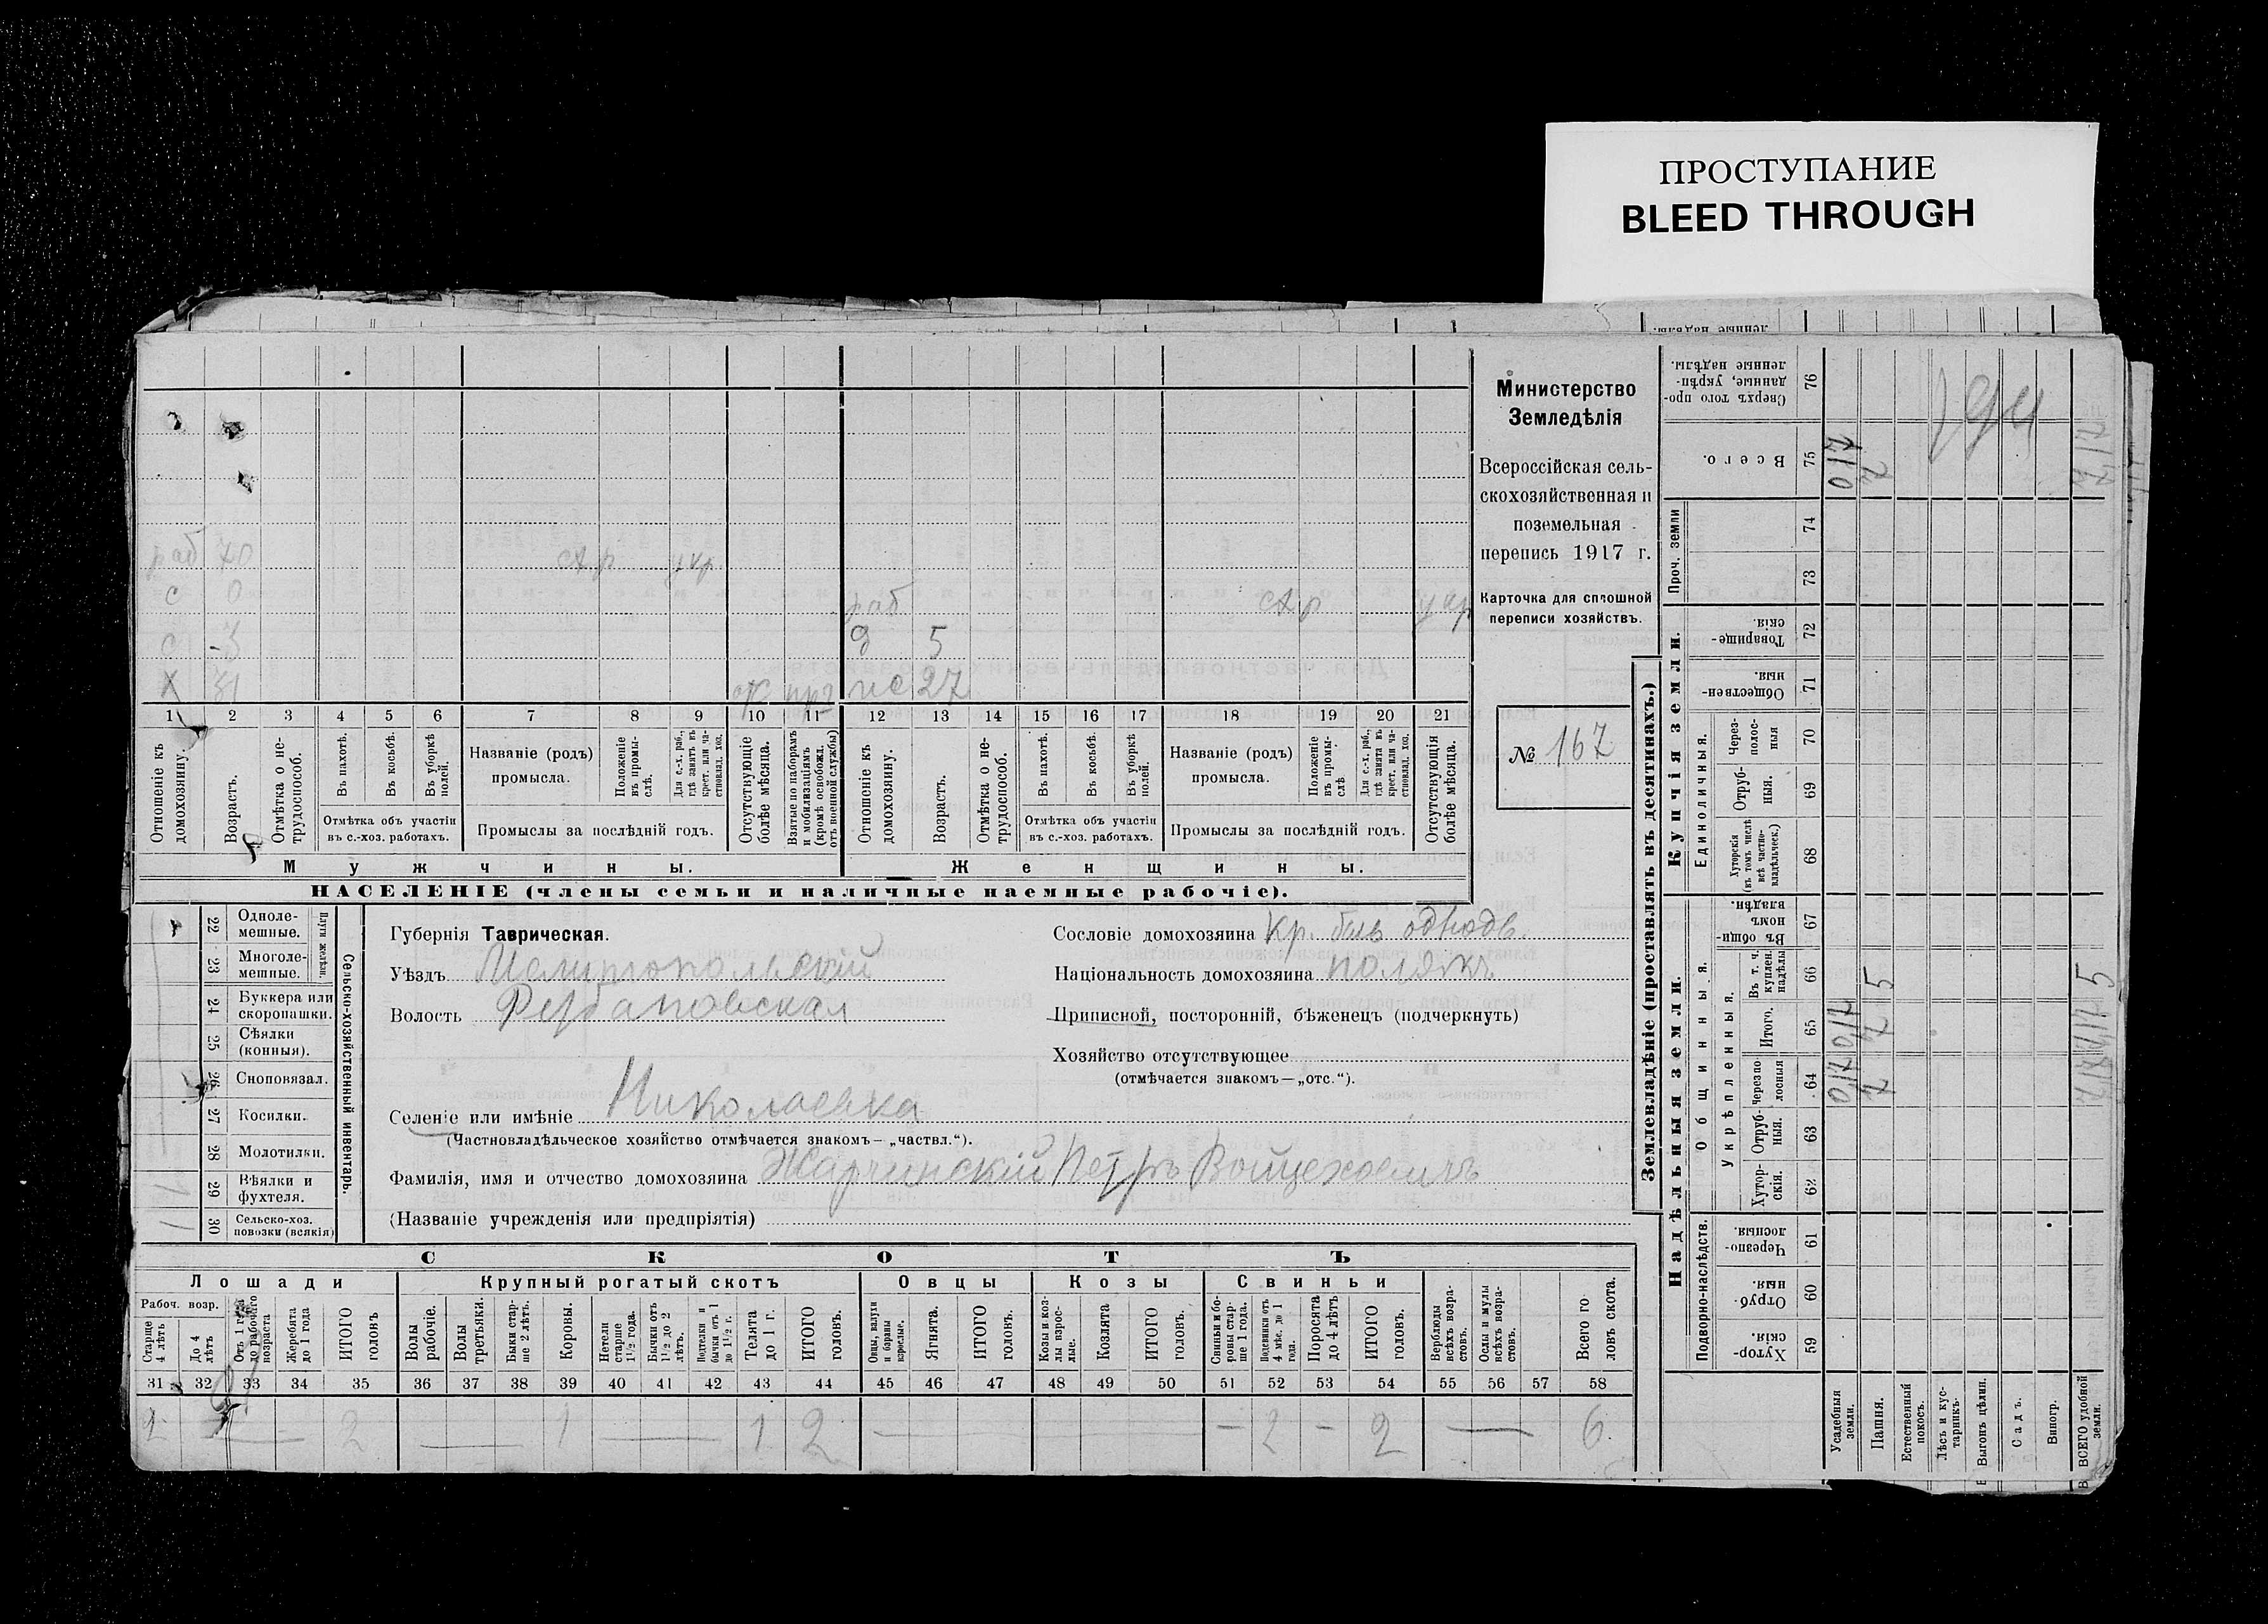 ПРОСТУПАНИЕ
BLEED THROUGH
Министерство
Земледѣлія
Всероссійская сель-
скохозяйственная и
поземельная
перепись 1917 г.
Карточка для сплошной
переписи хозяйствъ.
№ 167
раб 70 ст.р укр.
с 0 раб ст.р укр
с 3 д 5
х 31 27
1 2 3 4 5 6 7 8 9 10 11 12 13 14 15 16 17 18 19 20 21
Отношеніе къ домохозяину.
Возрастъ.
Отмѣтка о не-трудоспособ.
Въ пахотѣ.
Въ косьбѣ.
Въ уборкѣ полей.
Отмѣтка объ участіи въ с.-хоз. работахъ.
Названіе (родъ) промысла.
Положеніе въ промы-слѣ.
Для с.-х. раб., гдѣ занятъ въ крест. или ча-стновлад. хоз.
Промыслы за послѣдній годъ.
Отсутствующіе болѣе мѣсяца.
Взятые по наборамъ и мобилизаціямъ (кромѣ освобожд. отъ военной службы)
Отношеніе къ домохозяину.
Возрастъ.
Отмѣтка о не-трудоспособ.
Въ пахотѣ.
Въ косьбѣ.
Въ уборкѣ полей.
Отмѣтка объ участіи въ с.-хоз. работахъ.
Названіе (родъ) промысла.
Положеніе въ промы-слѣ
Для с.-х. раб., гдѣ занята въ крест. или ча-стновлад. хоз.
Промыслы за послѣдній годъ.
Отсутствующія болѣе мѣсяца.
Мужчины. Женщины.
НАСЕЛЕНІЕ (члены семьи и наличные наемные рабочіе).
22 Одноле-мешные.
23 Многоле-мешные.
Плуги желѣзн.
24 Буккера или скоропашки.
25 Сѣялки (конныя).
26 Сноповязал.
27 Косилки.
28 Молотилки.
29 Вѣялки и фухтеля.
30 Сельско-хоз. повозки (всякія)
Сельско-хозяйственный инвентарь.
Губернія Таврическая.
Уѣздъ Мелитопольскій
Волость
Селеніе или имѣніе Николаевка
(Частновладѣльческое хозяйство отмѣчается знакомъ— „частвл.“).
Фамилія, имя и отчество домохозяина Жарчинскій Петръ Войцеховичъ
(Названіе учрежденія или предпріятія)
Сословіе домохозяина Кр. быв однодв.
Національность домохозяина полякъ
Приписной, посторонній, бѣженецъ (подчеркнуть)
Хозяйство отсутствующее
(отмѣчается знакомъ—„отс.“).
СКОТЪ
Лошади Крупный рогатый скотъ Овцы Козы Свиньи
Рабоч. возр.
Старше 4 лѣтъ
До 4 лѣтъ
Отъ 1 года до рабочаго возраста
Жеребята до 1 года
ИТОГО головъ
Волы рабочіе.
Волы третьяки.
Быки стар-ше 2 лѣтъ.
Коровы.
Нетели старше 1 1/2 года.
Бычки отъ 1 1/2 до 2 лѣтъ.
Подтелки и бычки отъ 1 до 1 1/2 г.
Телята до 1 г.
ИТОГО головъ.
Овцы, валухи и бараны взрослые.
Ягнята.
ИТОГО головъ.
Козы и коз-лы взрос-лые.
Козлята
ИТОГО головъ.
Свиньи и бо-ровы стар-ше 1 года.
Подсвинки отъ 4 мѣс. до 1 года.
Поросята до 4 лѣтъ
ИТОГО головъ.
Верблюды всѣхъ возра-стовъ.
Ослы и мулы всѣхъ возра-стовъ.
Всего го ловъ скота.
31 32 33 34 35 36 37 38 39 40 41 42 43 44 45 46 47 48 49 50 51 52 53 54 55 56 57 58
2 — 2 — 1 — 1 2 — — 2 — 2 — 6
Землевладѣніе (проставлять въ десятинахъ.)
Надѣльныя земли. Купчія земли.
Подворно-наслѣдств. Общинныя. Единоличныя. Проч. земли
Укрѣпленныя.
Хутор-скія. 59
Отруб-ныя. 60
Черезпо-лосныя. 61
Хутор-скія. 62
Отруб-ныя. 63
Черезпо-лосныя 64
Итого. 65
Въ т. ч. куплен. надѣлы 66
Въ общин-номъ владѣн. 67
Хуторскія (въ томъ числѣ всѣ частно-владѣльческ.) 68
Отруб-ныя. 69
Через-полос-ныя 70
Обществен-ныя. 71
Товарище-скія. 72
73
74
Всего. 75
Сверхъ того про-данные, укрѣп-ленные надѣлы. 76
Усадебныя земли.
Пашня.
Естественный покосъ.
Лѣсъ и кус-тарникъ.
Выгонъ цѣлин.
Садъ.
Виногр.
ВСЕГО удобной земли.
5
5